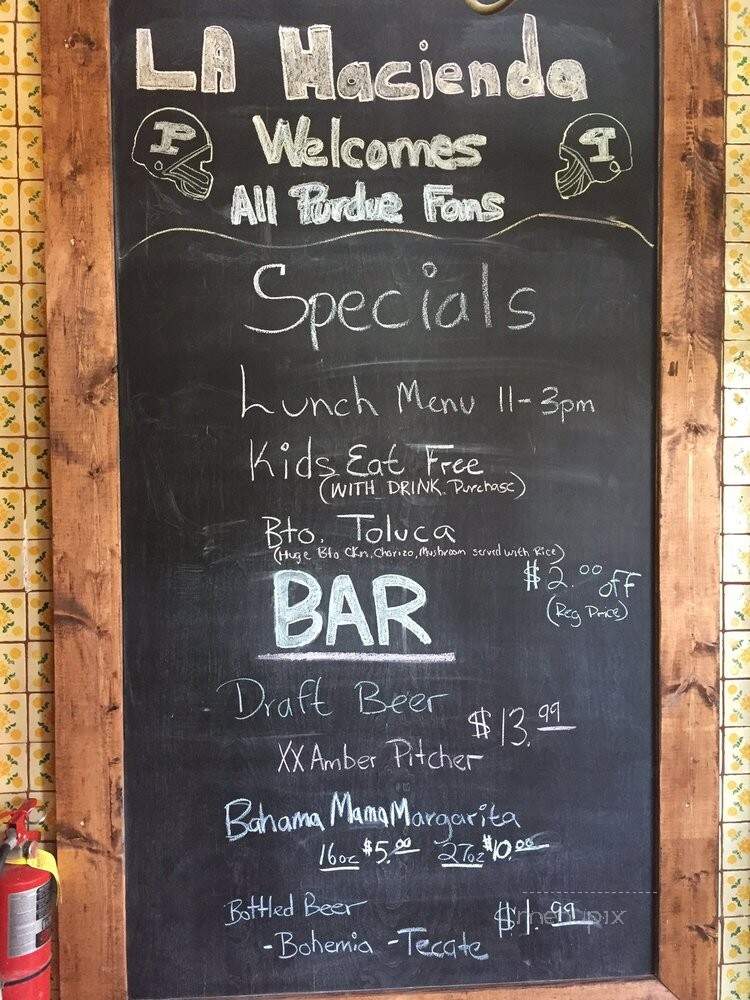 LA Hacienda
P
P
Welcomes
All Purdue Fans
Specials
Lunch Menu 11-3pm
Kids Eat Free
(WITH DRINK Purchase)
Bto. Toluca
(Huge Bto Ckn, Chorizo, Mushroom served with Rice)
$2.00 off
(Reg Price)
BAR
Draft Beer
$13.99
XX Amber Pitcher
Bahama Mama Margarita
16oz $5.00 27oz $10.00
Bottled Beer
$1.99
-Bohemia -Tecate
menupix